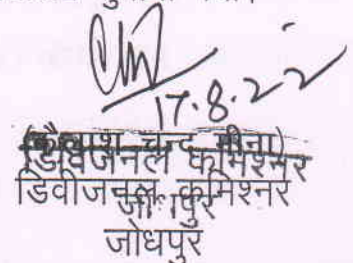 17.8.22
(कैलाश चन्द मीना)
डिविजनल कमिश्नर
डिवीजनल कमिश्नर
जोधपुर
जोधपुर